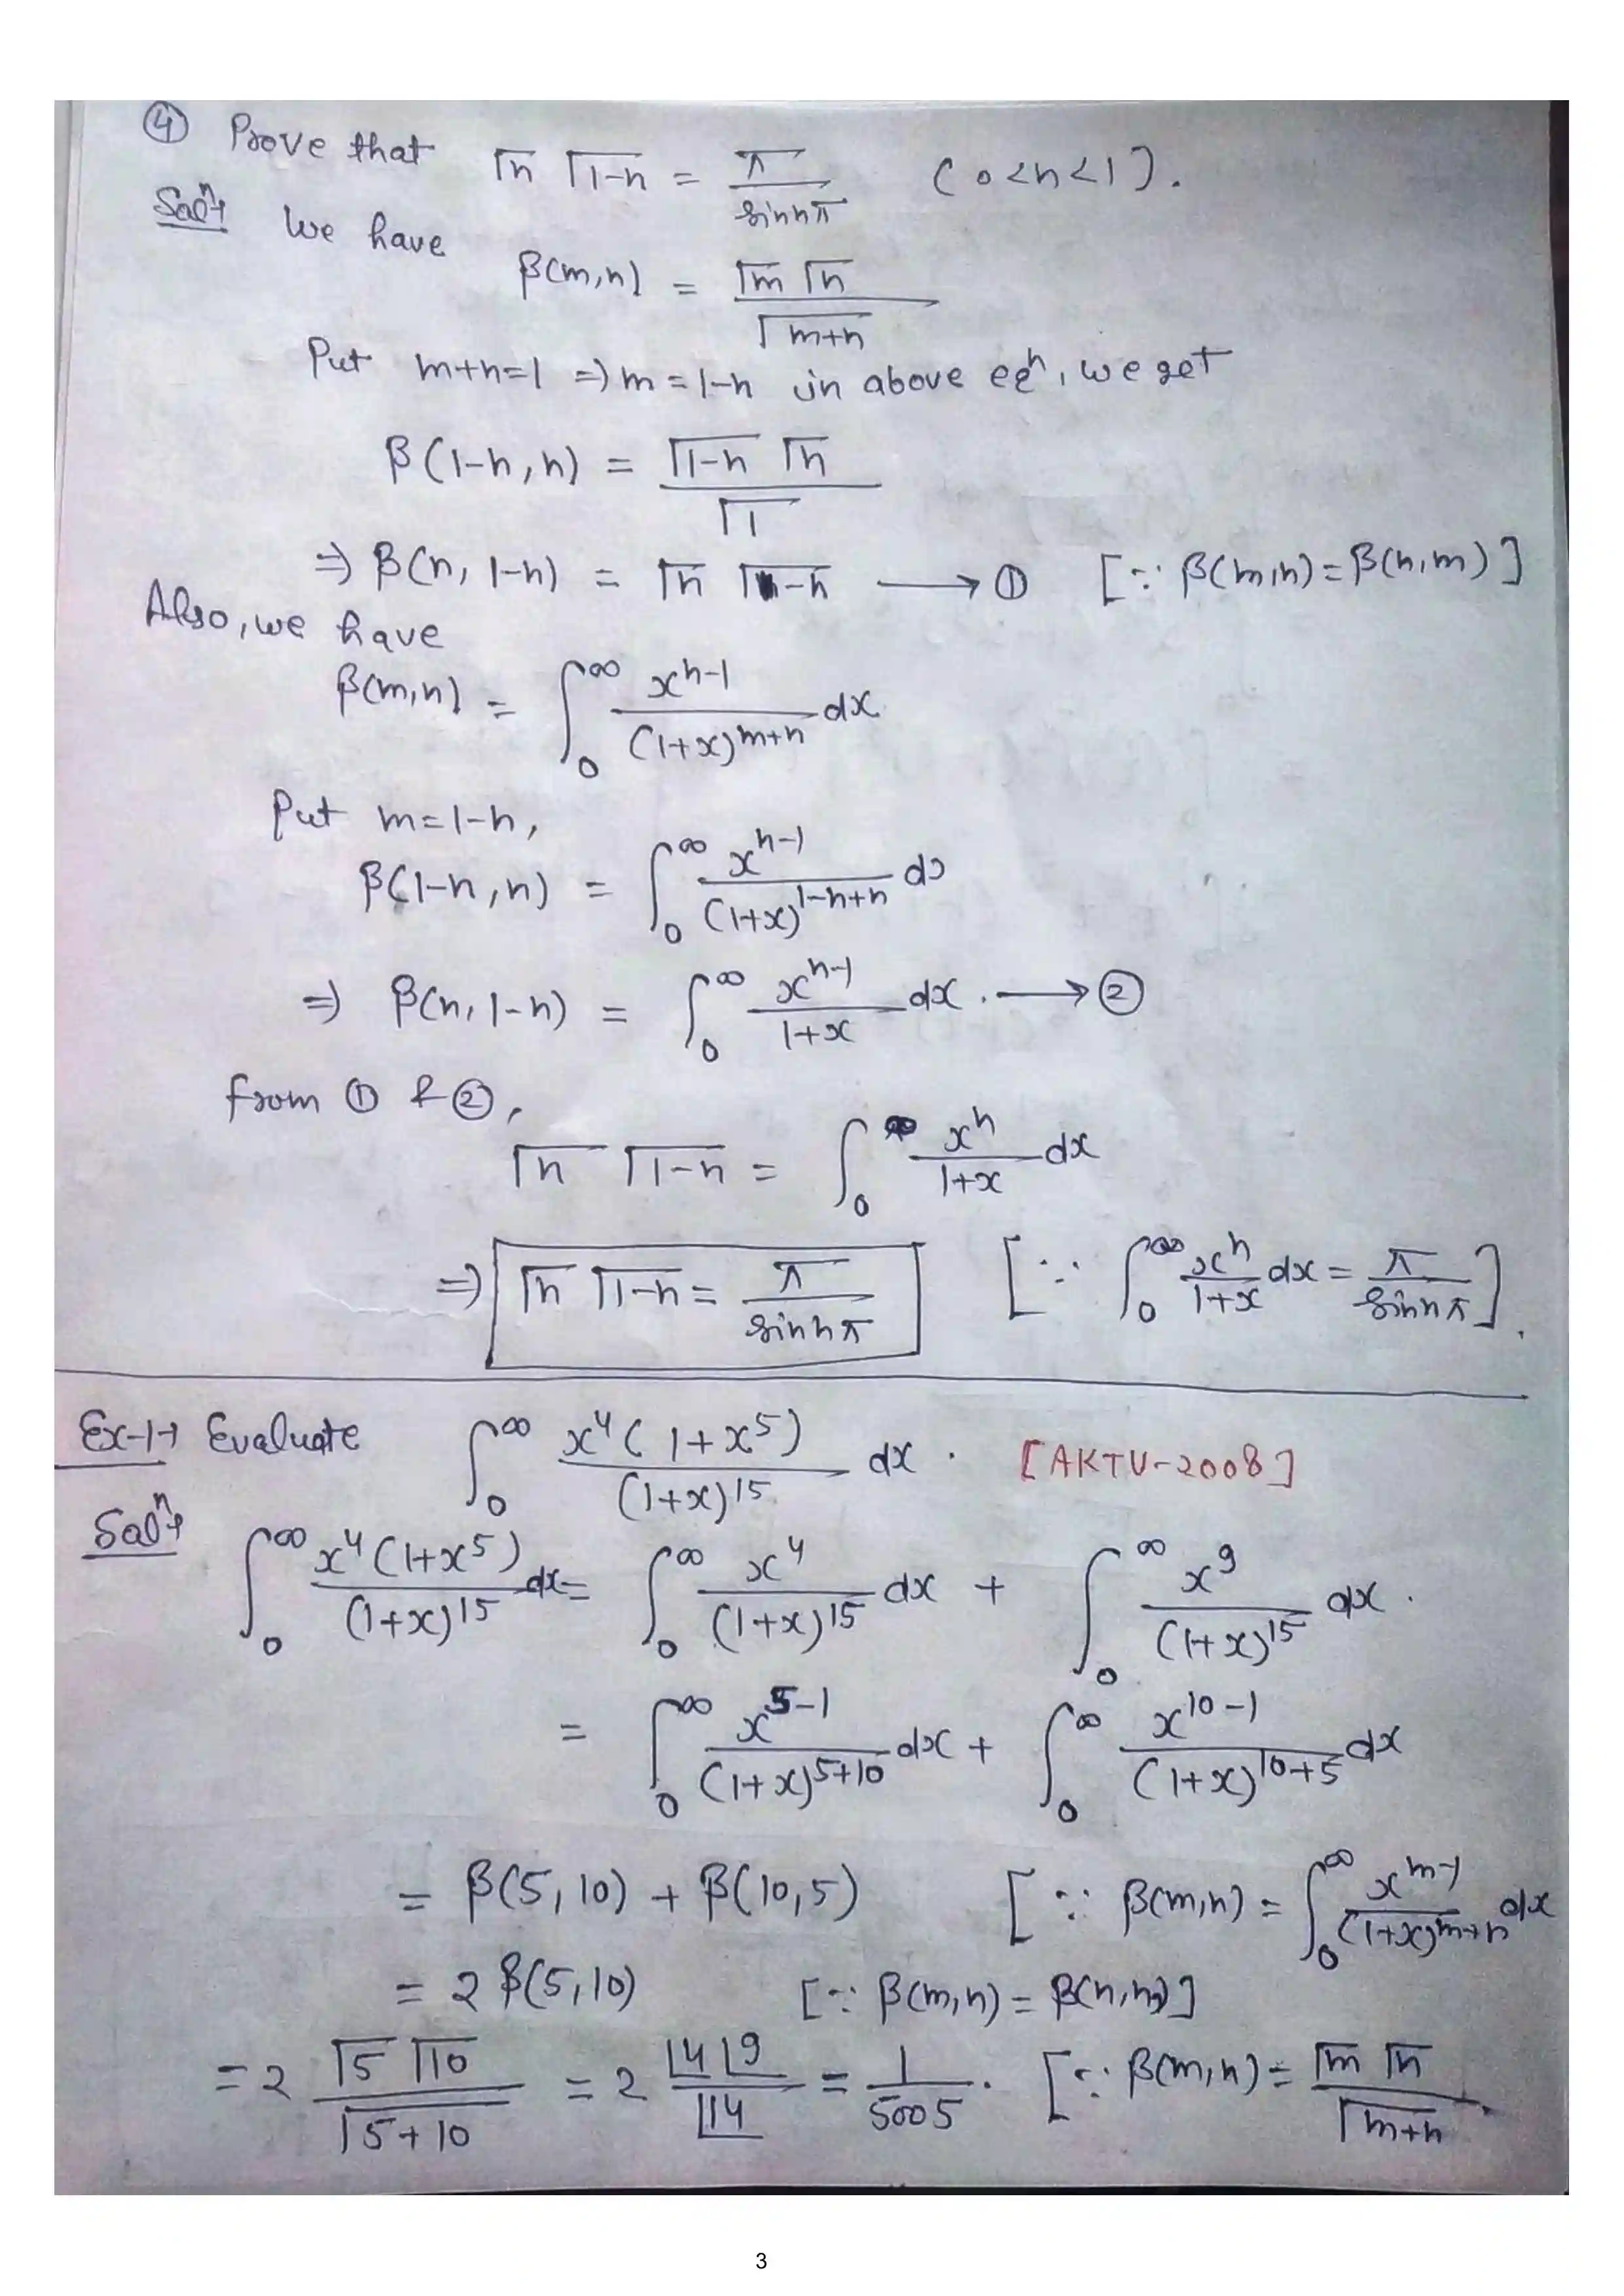 ④ Prove that Γn Γ1-n = π/sin nπ (0<n<1).
Solⁿ→ We have
β(m,n) = Γm Γn / Γm+n
Put m+n=1 ⇒ m=1-n in above eqⁿ, we get
β(1-n,n) = Γ1-n Γn / Γ1
⇒ β(n, 1-n) = Γn Γ1-n ⟶ ① [∵ β(m,n)=β(n,m)]
Also, we have
β(m,n) = ∫₀^∞ x^(n-1)/(1+x)^(m+n) dx
Put m=1-n,
β(1-n,n) = ∫₀^∞ x^(n-1)/(1+x)^(1-n+n) dx
⇒ β(n,1-n) = ∫₀^∞ x^(n-1)/(1+x) dx. ⟶ ②
from ① & ②,
Γn Γ1-n = ∫₀^∞ x^n/(1+x) dx
⇒ Γn Γ1-n = π/sin nπ [∵ ∫₀^∞ x^n/(1+x) dx = π/sin nπ].
Ex-1→ Evaluate ∫₀^∞ x⁴(1+x⁵)/(1+x)^15 dx. [AKTU-2008]
Solⁿ→ ∫₀^∞ x⁴(1+x⁵)/(1+x)^15 dx = ∫₀^∞ x⁴/(1+x)^15 dx + ∫₀^∞ x⁹/(1+x)^15 dx.
= ∫₀^∞ x^(5-1)/(1+x)^(5+10) dx + ∫₀^∞ x^(10-1)/(1+x)^(10+5) dx
= β(5,10) + β(10,5) [∵ β(m,n) = ∫₀^∞ x^(m-1)/(1+x)^(m+n) dx
= 2 β(5,10) [∵ β(m,n) = β(n,m)]
= 2 Γ5 Γ10 / Γ5+10 = 2 ⌊4 ⌊9 / ⌊14 = 1/5005. [∵ β(m,n) = Γm Γn / Γm+n.
3